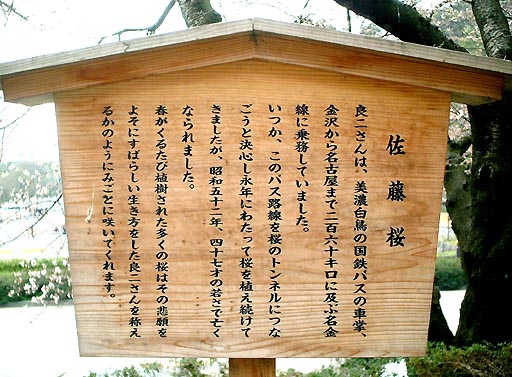 佐藤桜
良二さんは、美濃白鳥の国鉄バスの車掌、
金沢から名古屋まで二百六十キロに及ぶ名金
線に乗務していました。
いつか、このバス路線を桜のトンネルにつな
ごうと決心し永年にわたって桜を植え続けて
きましたが、昭和五十二年、四十七才の若さで亡く
なられました。
春がくるたび植樹された多くの桜はその悲願を
よそにすばらしい生き方をした良二さんを称え
るかのようにみごとに咲いてくれます。